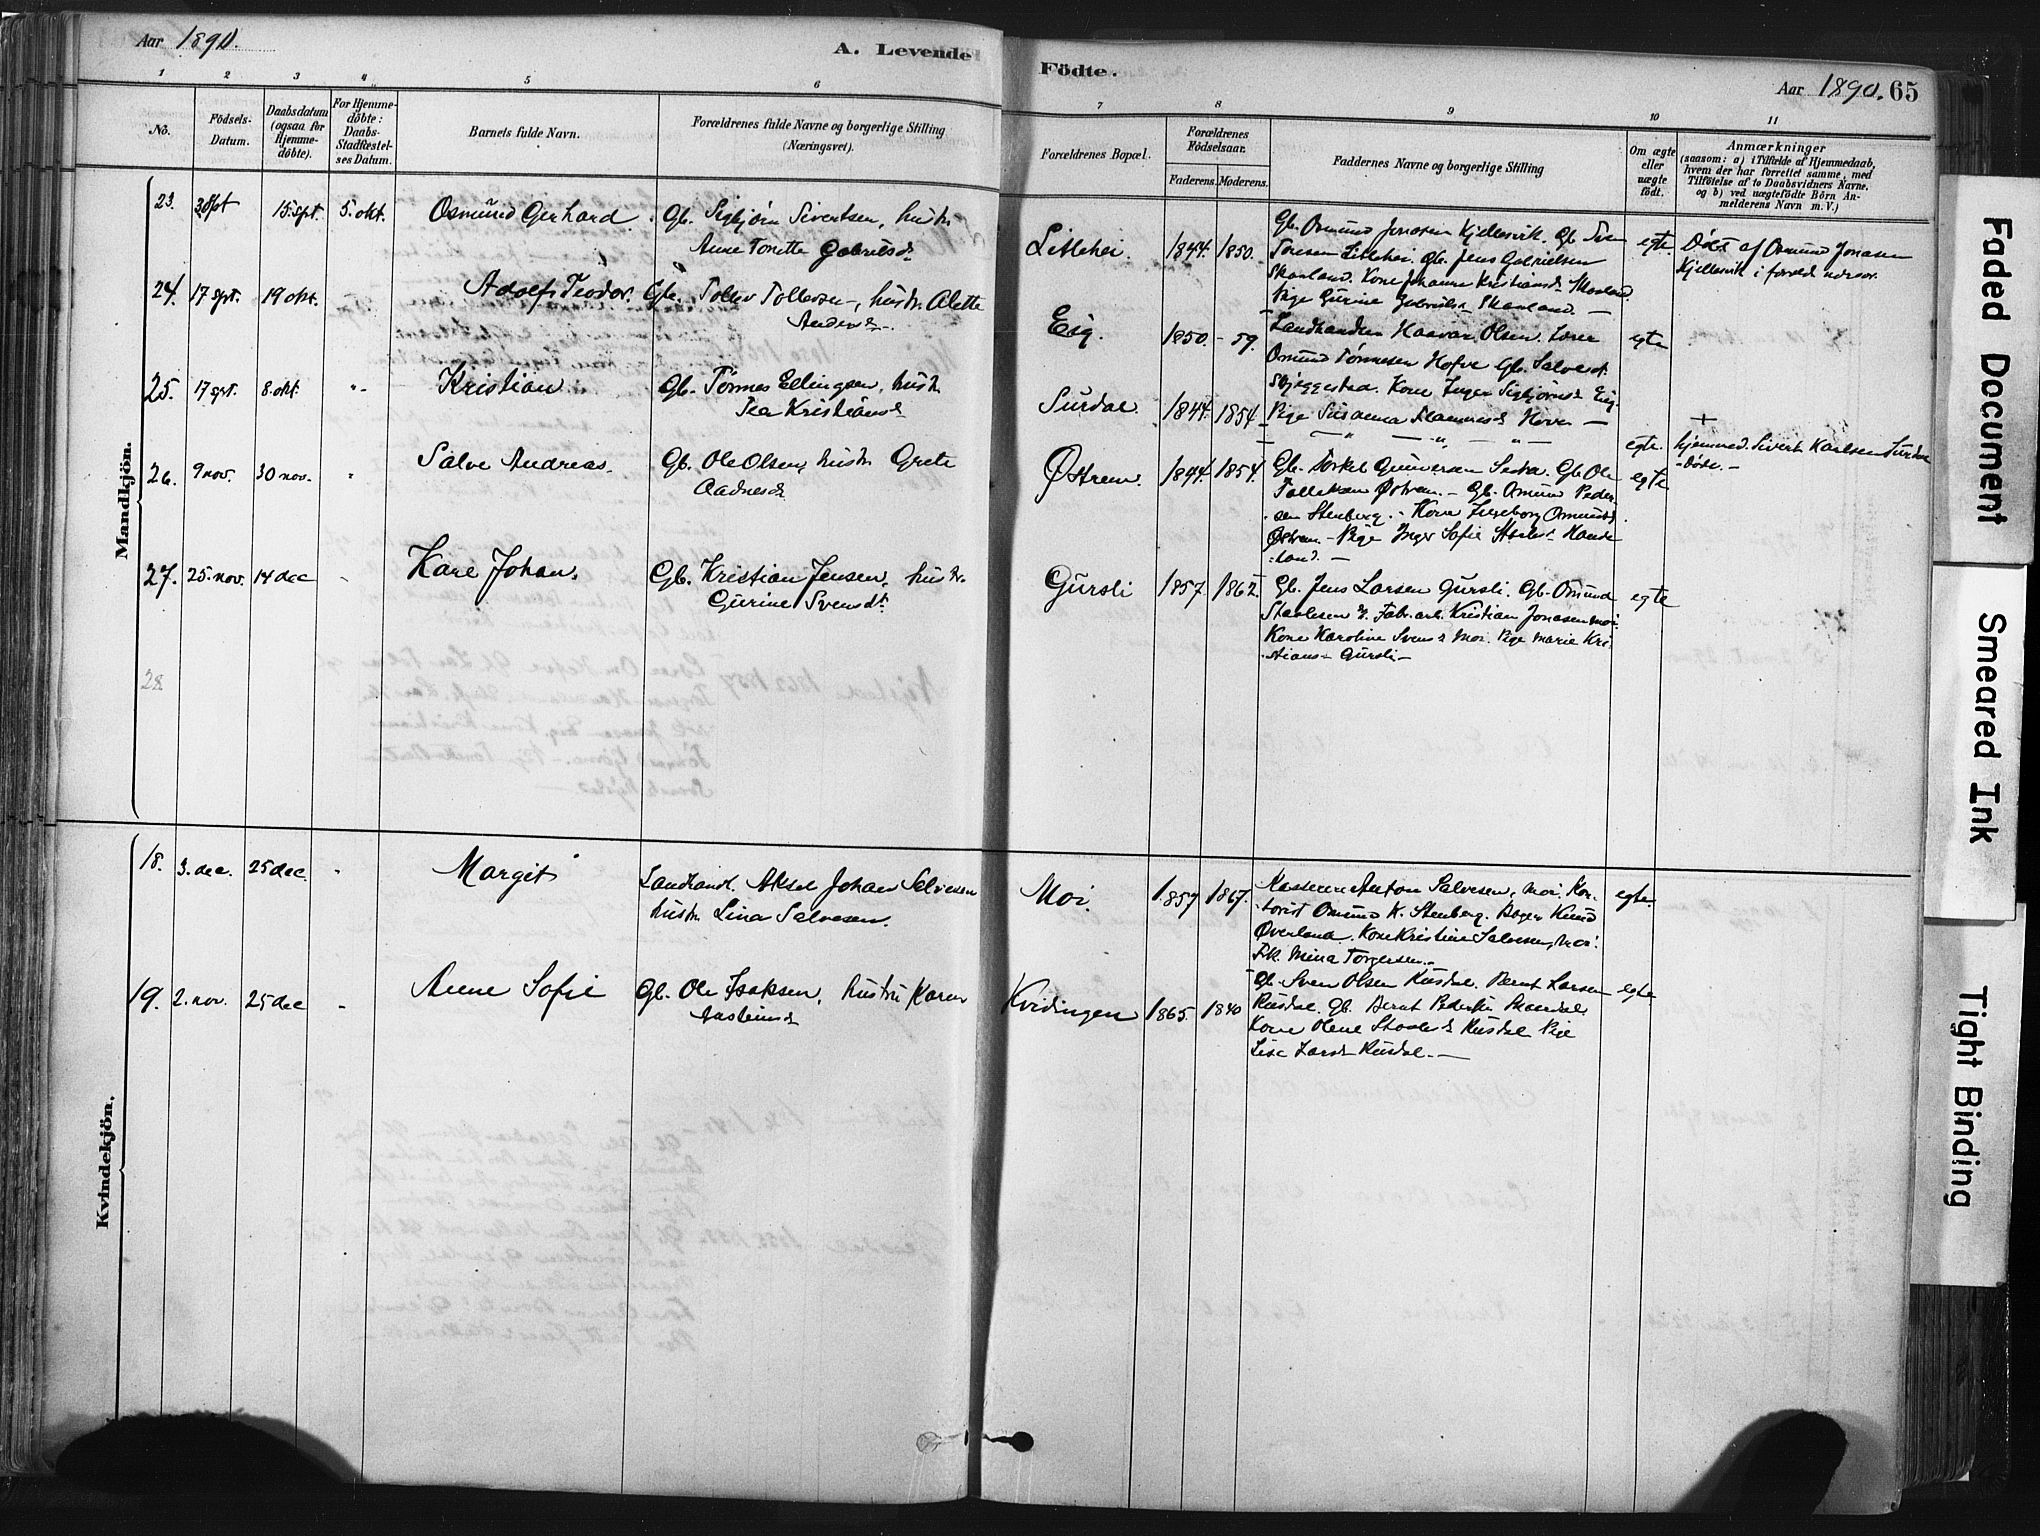 Aar 1890.
A. Levende
Födte.
Aar 1890. 65
1 2 3 4 5 6 7 8 9 10 11
No.
Födsels-Datum.
Daabsdatum (ogsaa for Hjemme-döbte).
For Hjemme-döbte: Daabs-Stadfæstel-ses Datum.
Barnets fulde Navn.
Forældrenes fulde Navne og borgerlige Stilling (Næringsvei).
Forældrenes Bopæl.
Forældrenes Födselsaar.
Faderens. Moderens.
Faddernes Navne og borgerlige Stilling
Om ægte eller uægte födt.
Anmærkninger
(saasom: a) i Tilfælde af Hjemmedaab,
hvem der har forrettet samme, med
Tilföielse af to Daabsvidners Navne.
og b) ved uægtefödte Börn An-
melderens Navn m. V.)
Mandkjön.
23. 15. spt. 5. okt. Osmund Gerhard. Gb. Sigbjörn Sivertsen, hustr.
Anne Tonette Gabrielsd.
Litlehei. 1844. 1850.
Gb. Osmund Jonassen Kjellesvik. Gb.
Litlehei. Gb. Jens Gabrielsen
Skanland. Kone Johanne Kristiansd. Skanland
Pige Gurine Skanland. —
egte.
Döbt af Osmund Jonassen
Kjellesvik i foræld. nærvær.
24. 17 spt. 19 okt. Adolf Teodor. Gb. Tollev Tollevsen, hustr. Alette
Eig. 1850. - 59.
Landhandler Haavar Olsen. Lærer
Osmund Tönnesen Hofve. Gb. Salve
Skjeggestad. Kone Inger Sigbjörnsd. Eig.
Pige Susanna Hove —
egte
25. 17 spt. 8. okt. Kristian. Gb. Tönnes Ellingsen, hustr.
Tea Kristiansd.
Surdal. 1844. 1854
— " — " — " —
egte.
+
hjemmed. Sivert Karlsen Surdal
26. 9 nov. 30 nov. Salve Andreas. Gb. Ole Olsen, hustr. Grete
Aadnesd.
Östrem. 1844. 1854.
Gb. Torkel Gunversen. Gb. Ole
Östrem. — Gb. Osmund Peder-
sen Stenberg. - Kone Ingeborg Osmundsd.
Östrem — Pige Inger Sofie Hande-
land. —
egte
27. 25. nov. 14 dec Kare Johan. Gb. Kristian Jensen. hustr.
Gurine Svensdt.
Gursli 1857. 1862.
Gb. Jens Larsen Gursli. Gb. Osmund
Staalesen Fabr.arb. Kristian Jonassen Moi.
Kone Karoline Svensd. Moi. Pige Marie Kri-
stians- Gursli —
egte
28
Kvindekjön.
18. 3. dec. 25 dec. Margit Landhandl. Aksel Johan Salvesen
hustr. Lina Salvesen.
Moi. 1857 1867.
Kasserer Anton Salvesen, Moi. Kon-
torist Osmund K. Stenberg. Knud
Överland. Kone Kristine Salvesen, Moi.
Frk. Mina Torgersen. —
egte.
19. 2. nov. 25 dec Anne Sofie Gb. Ole Isaksen, hustru Karen
Kvidingen 1865. 1840
Gb. Sven Olsen Rusdal. Bernt Larsen
Rusdal. Gb. Bernt Pedersen
Kone Olene Staalesd. Rusdal Pige
Lise Larsd. Rusdal. —
egte
Faded Document
Smeared Ink
Tight Binding